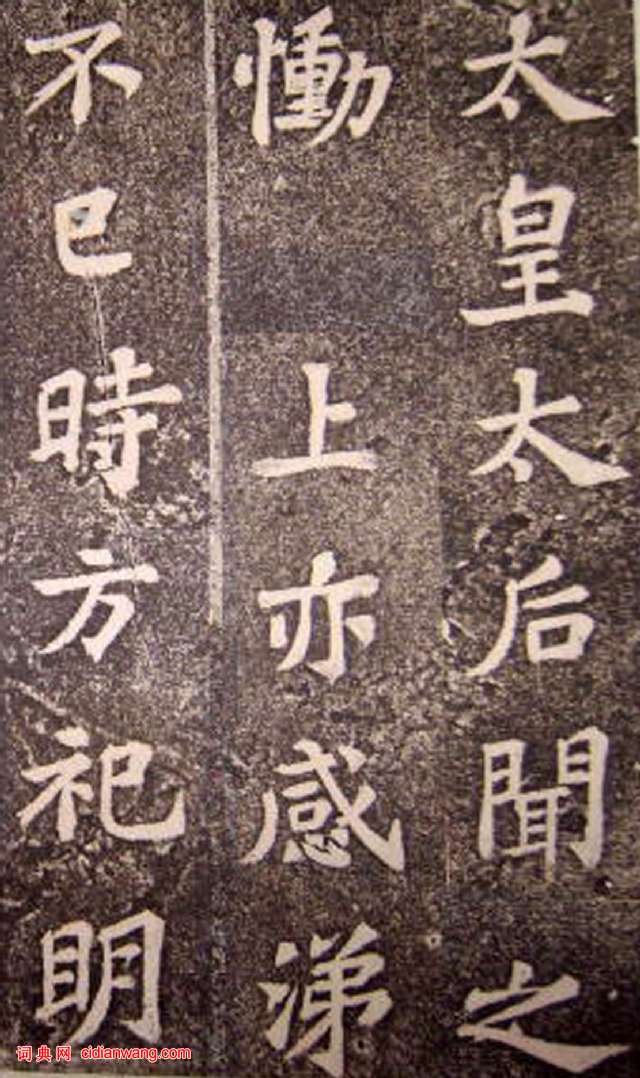 太皇太后聞之
慟 上亦感涕
不已時方祀明
词典网 cidianwang.com